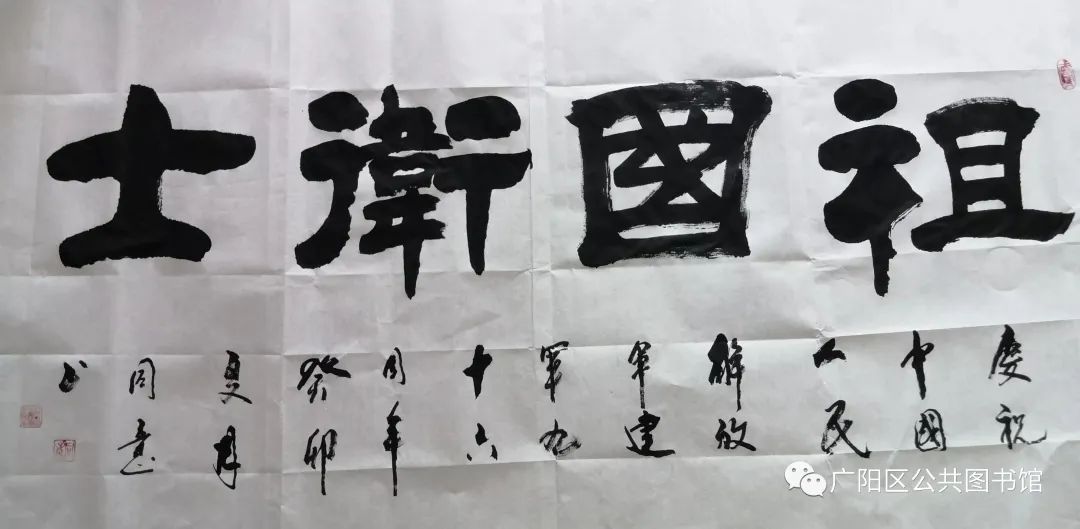 祖國衛士
慶祝
中國
人民
解放
軍建
軍九
十六
周年
癸卯
夏月
周意
书
广阳区公共图书馆